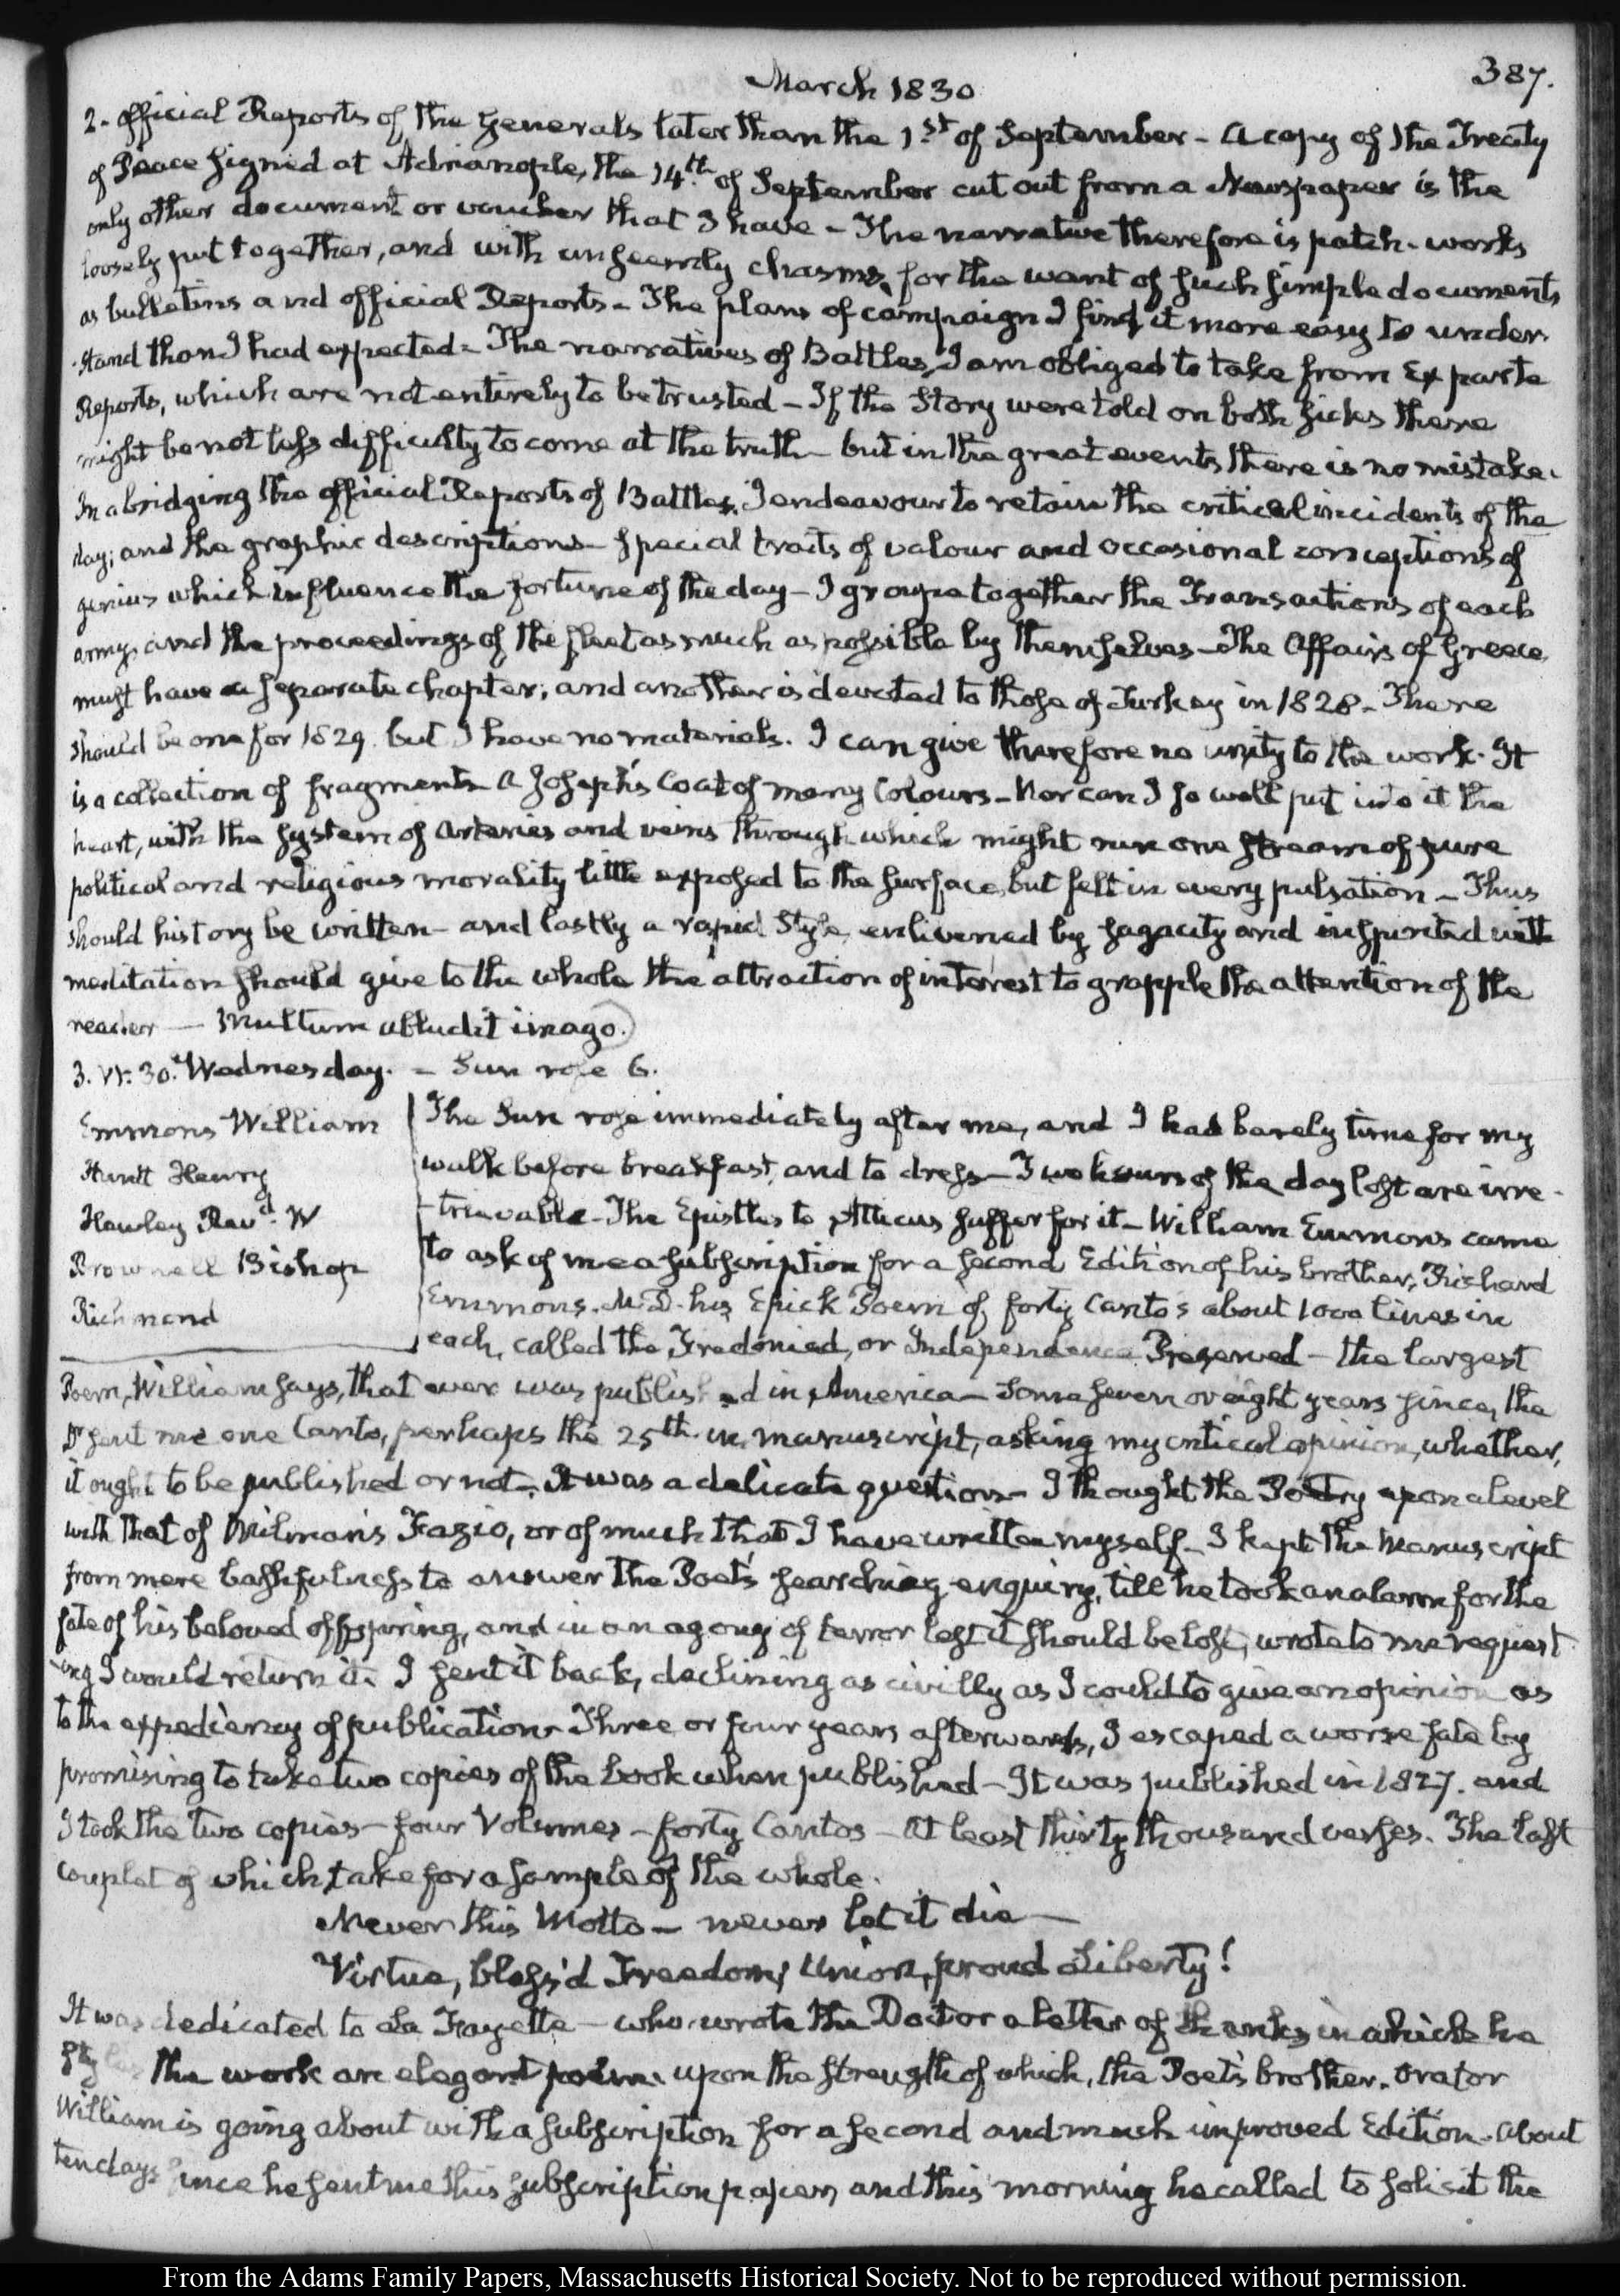 March 1830
387.
2. official Reports of the Generals later than the 1st of September - A copy of the Treaty
of Peace signed at Adrianople, the 14th of September cut out from a Newspaper is the
only other document or voucher that I have - The narrative therefore is patch-work
loosely put together, and with unseemly chasms, for the want of such simple documents
as bulletins and official Reports - The plans of campaign I find it more easy to under-
-stand than I had expected - The narratives of Battles, I am obliged to take from Ex parte
Reports, which are not entirely to be trusted - If the Story were told on both sides there
might be not less difficulty to come at the truth - but in the great events there is no mistake.
In abridging the official Reports of Battles, I endeavour to retain the critical incidents of the
day; and the graphic descriptions - special traits of valour and occasional conceptions of
genius which influence the fortune of the day - I groupe together the Transactions of each
army, and the proceedings of the fleet as much as possible by themselves - The Affairs of Greece
must have a separate chapter; and another is devoted to those of Turkey in 1828 - There
should be one for 1829. but I have no materials. I can give therefore no unity to the work. It
is a collection of fragments - A Joseph's Coat of many Colours - Nor can I so well put into it the
heart, with the system of arteries and veins through which might run one stream of pure
political and religious morality little exposed to the surface, but felt in every pulsation - Thus
should history be written - and lastly a rapid Style, enlivened by sagacity and inspirited with
meditation should give to the whole the attraction of interest to grapple the attention of the
reader — Multum abludit imago.
3. VI: 30. Wednesday. - Sun rose 6.
Emmons William
Huntt Henry
Hawley Revd. W
Brownell Bishop
Richmond
The Sun rose immediately after me, and I had barely time for my
walk before breakfast, and to dress - Two hours of the day lost are irre-
-trievable - The Epistles to Atticus suffer for it - William Emmons came
to ask of me a subscription for a second Edition of his brother, Richard
Emmons. M.D. his Epick Poem of forty Canto's about 1000 lines in
each, called the Fredoniad, or Independence Preserved - the largest
Poem, William says, that ever was published in America - Some seven or eight years since, the
Dr sent me one Canto, perhaps the 25th in manuscript, asking my critical opinion, whether
it ought to be published or not - It was a delicate question - I thought the Poetry upon a level
with that of Milman's Fazio, or of much that I have written myself - I kept the Manuscript
from mere bashfulness to answer the Poet's searching enquiry, till he took an alarm for the
fate of his beloved offspring, and in an agony of terror lest it should be lost, wrote to me request-
-ing I would return it. I sent it back, declining as civilly as I could to give an opinion as
to the expediency of publication - Three or four years afterwards, I escaped a worse fate by
promising to take two copies of the book when published - It was published in 1827. and
I took the two copies - four Volumes - forty Cantos - at least thirty thousand verses. The last
couplet of which, take for a sample of the whole.
Never this Motto - never let it die —
Virtue, bless'd Freedom, Union, proud Liberty!
It was dedicated to La Fayette - who wrote the Doctor a letter of thanks in which he
styles the work an elegant poem. upon the strength of which, the Poet's brother. Orator
William is going about with a subscription for a second and much improved Edition. About
ten days since he sent me this subscription paper, and this morning he called to solicit the
From the Adams Family Papers, Massachusetts Historical Society. Not to be reproduced without permission.